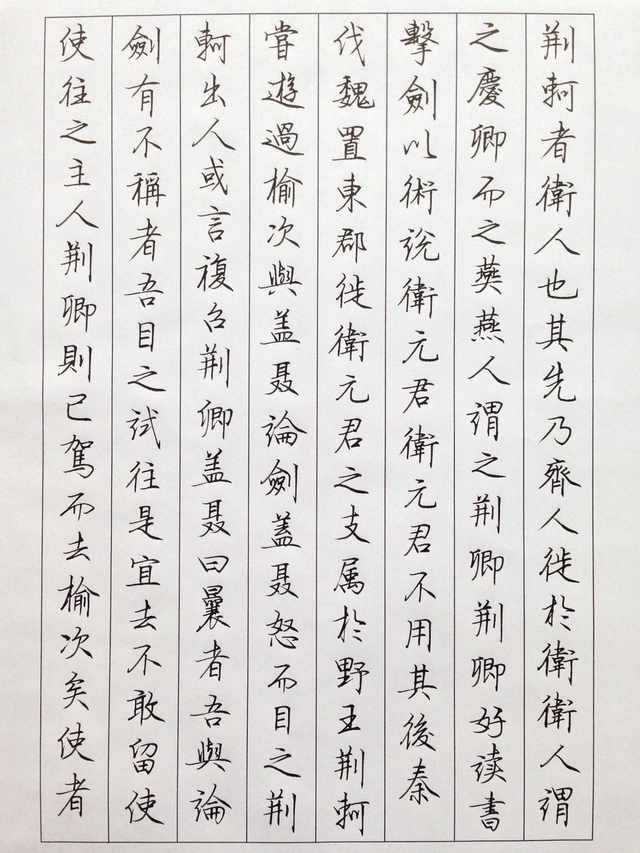 荆軻者衛人也其先乃齊人徙於衛衛人謂
之慶卿而之燕燕人謂之荆卿荆卿好读書
擊劍以術说衛元君衛元君不用其後秦
伐魏置東郡徙衛元君之支属於野王荆軻
嘗遊過榆次與盖聂論劍蓋聂怒而目之荆
軻出人或言複召荆卿盖聂曰曩者吾與論
劍有不稱者吾目之试往是宜去不敢留使
使往之主人荆卿則已駕而去榆次矣使者